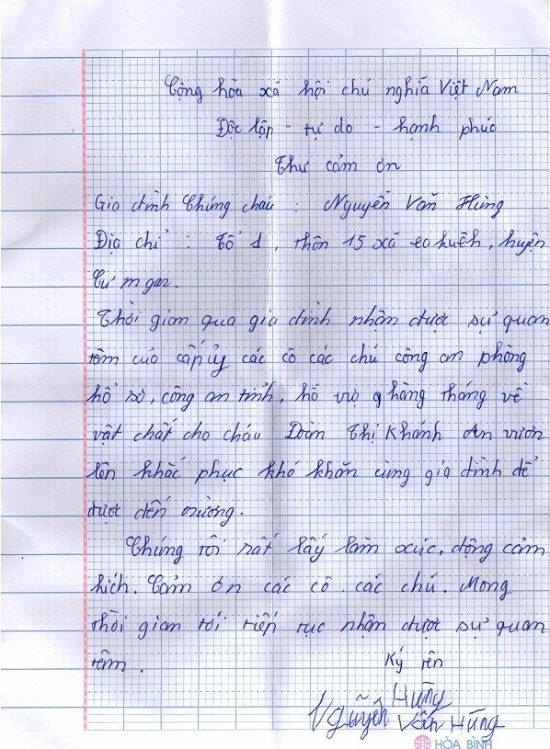 Cộng hòa xã hội chủ nghĩa Việt Nam
Độc lập - tự do - hạnh phúc
Thư cảm ơn
Gia đình Chúng cháu : Nguyễn Văn Hùng
Địa chỉ : tổ 1, thôn 15 xã eakuêh, huyện
Cư mgar.
Thời gian qua gia đình nhận được sự quan
tâm của cấp ủy các cô các chú công an phòng
hồ sơ, công an tỉnh. hỗ hàng tháng về
vật chất cho cháu Đàm Thị Khánh An vươn
lên khắc phục khó khăn cùng gia đình để
được đến trường.
Chúng tôi rất lấy làm xúc, động cảm
kích. Cảm ơn các cô. các chú. Mong
thời gian tới tiếp tục nhận được sự quan
tâm.
Ký tên
Hùng
Nguyễn Văn Hùng
HÒA BÌNH